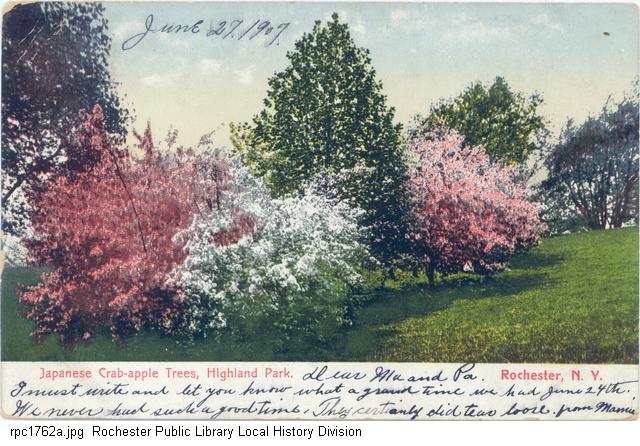 June 27. 1907
Japanese Crab-apple Trees, Highland Park. Dear Ma and Pa. Rochester, N. Y.
I must write and let you know what a grand time we had June 24th.
We never had such a good time. They certianly did tear loose. from Mamie
rpc1762a.jpg Rochester Public Library Local History Division